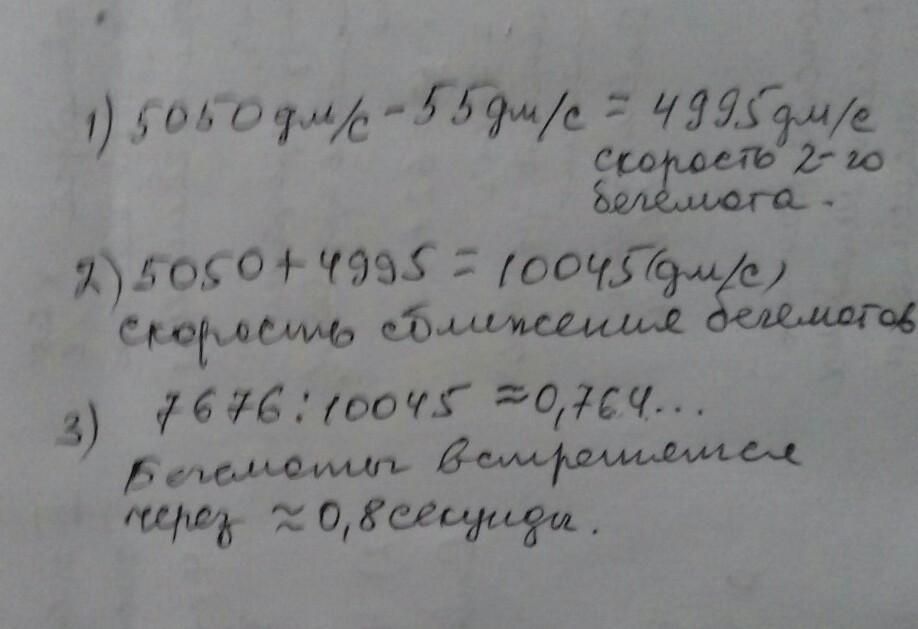 1) 5050 дм/с - 55 дм/с = 4995 дм/с
скорость 2-го
бегемота.
2) 5050 + 4995 = 10045 (дм/с)
скорость сближения бегемотов
3) 7676 : 10045 ≈ 0,764...
Бегемоты встретятся
через ≈ 0,8 секунды.